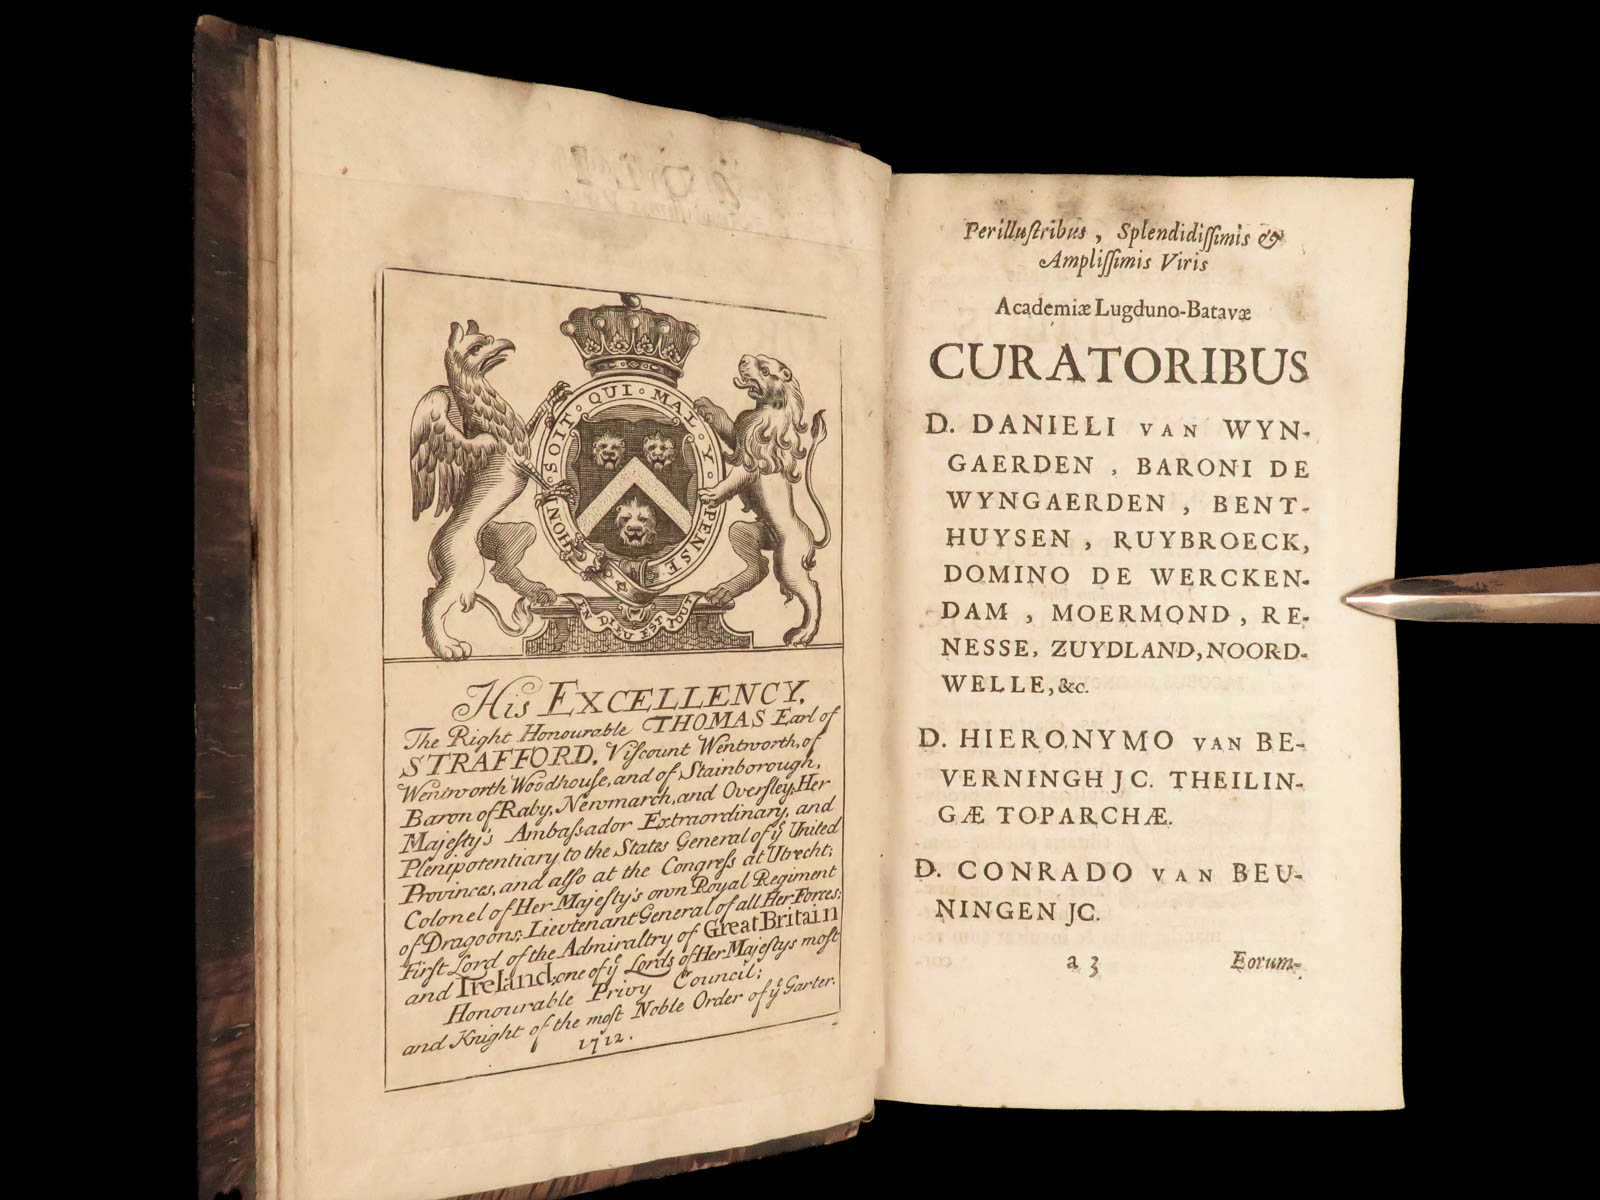 HONI · SOIT · QUI · MAL · Y · PENSE
EN DIEU EST TOUT
His EXCELLENCY,
The Right Honourable THOMAS Earl of
STRAFFORD, Viſcount Wentworth, of
Wentworth Woodhouſe, and of Stainborough,
Baron of Raby, Newmarch, and Overſley, Her
Majeſty's Ambaſsador Extraordinary, and
Plenipotentiary to the States General of yͤ United
Provinces, and alſo at the Congreſs at Utrecht;
Colonel of Her Majeſty's own Royal Regiment
of Dragoons; Lieutenant General of all Her Forces;
Firſt Lord of the Admiraltry of Great Britain
and Ireland; one of yͤ Lords of Her Majeſtys moſt
Honourable Privy Council;
and Knight of the moſt Noble Order of yͤ Garter.
1712.
Perilluſtribus, Splendidiſſimis &
Ampliſſimis Viris
Academiæ Lugduno-Batavæ
CURATORIBUS
D. DANIELI VAN WYN-
GAERDEN, BARONI DE
WYNGAERDEN, BENT-
HUYSEN, RUYBROECK,
DOMINO DE WERCKEN-
DAM, MOERMOND, RE-
NESSE, ZUYDLAND, NOORD-
WELLE, &c.
D. HIERONYMO VAN BE-
VERNINGH JC. THEILIN-
GÆ TOPARCHÆ.
D. CONRADO VAN BEU-
NINGEN JC.
a 3 Eorum-